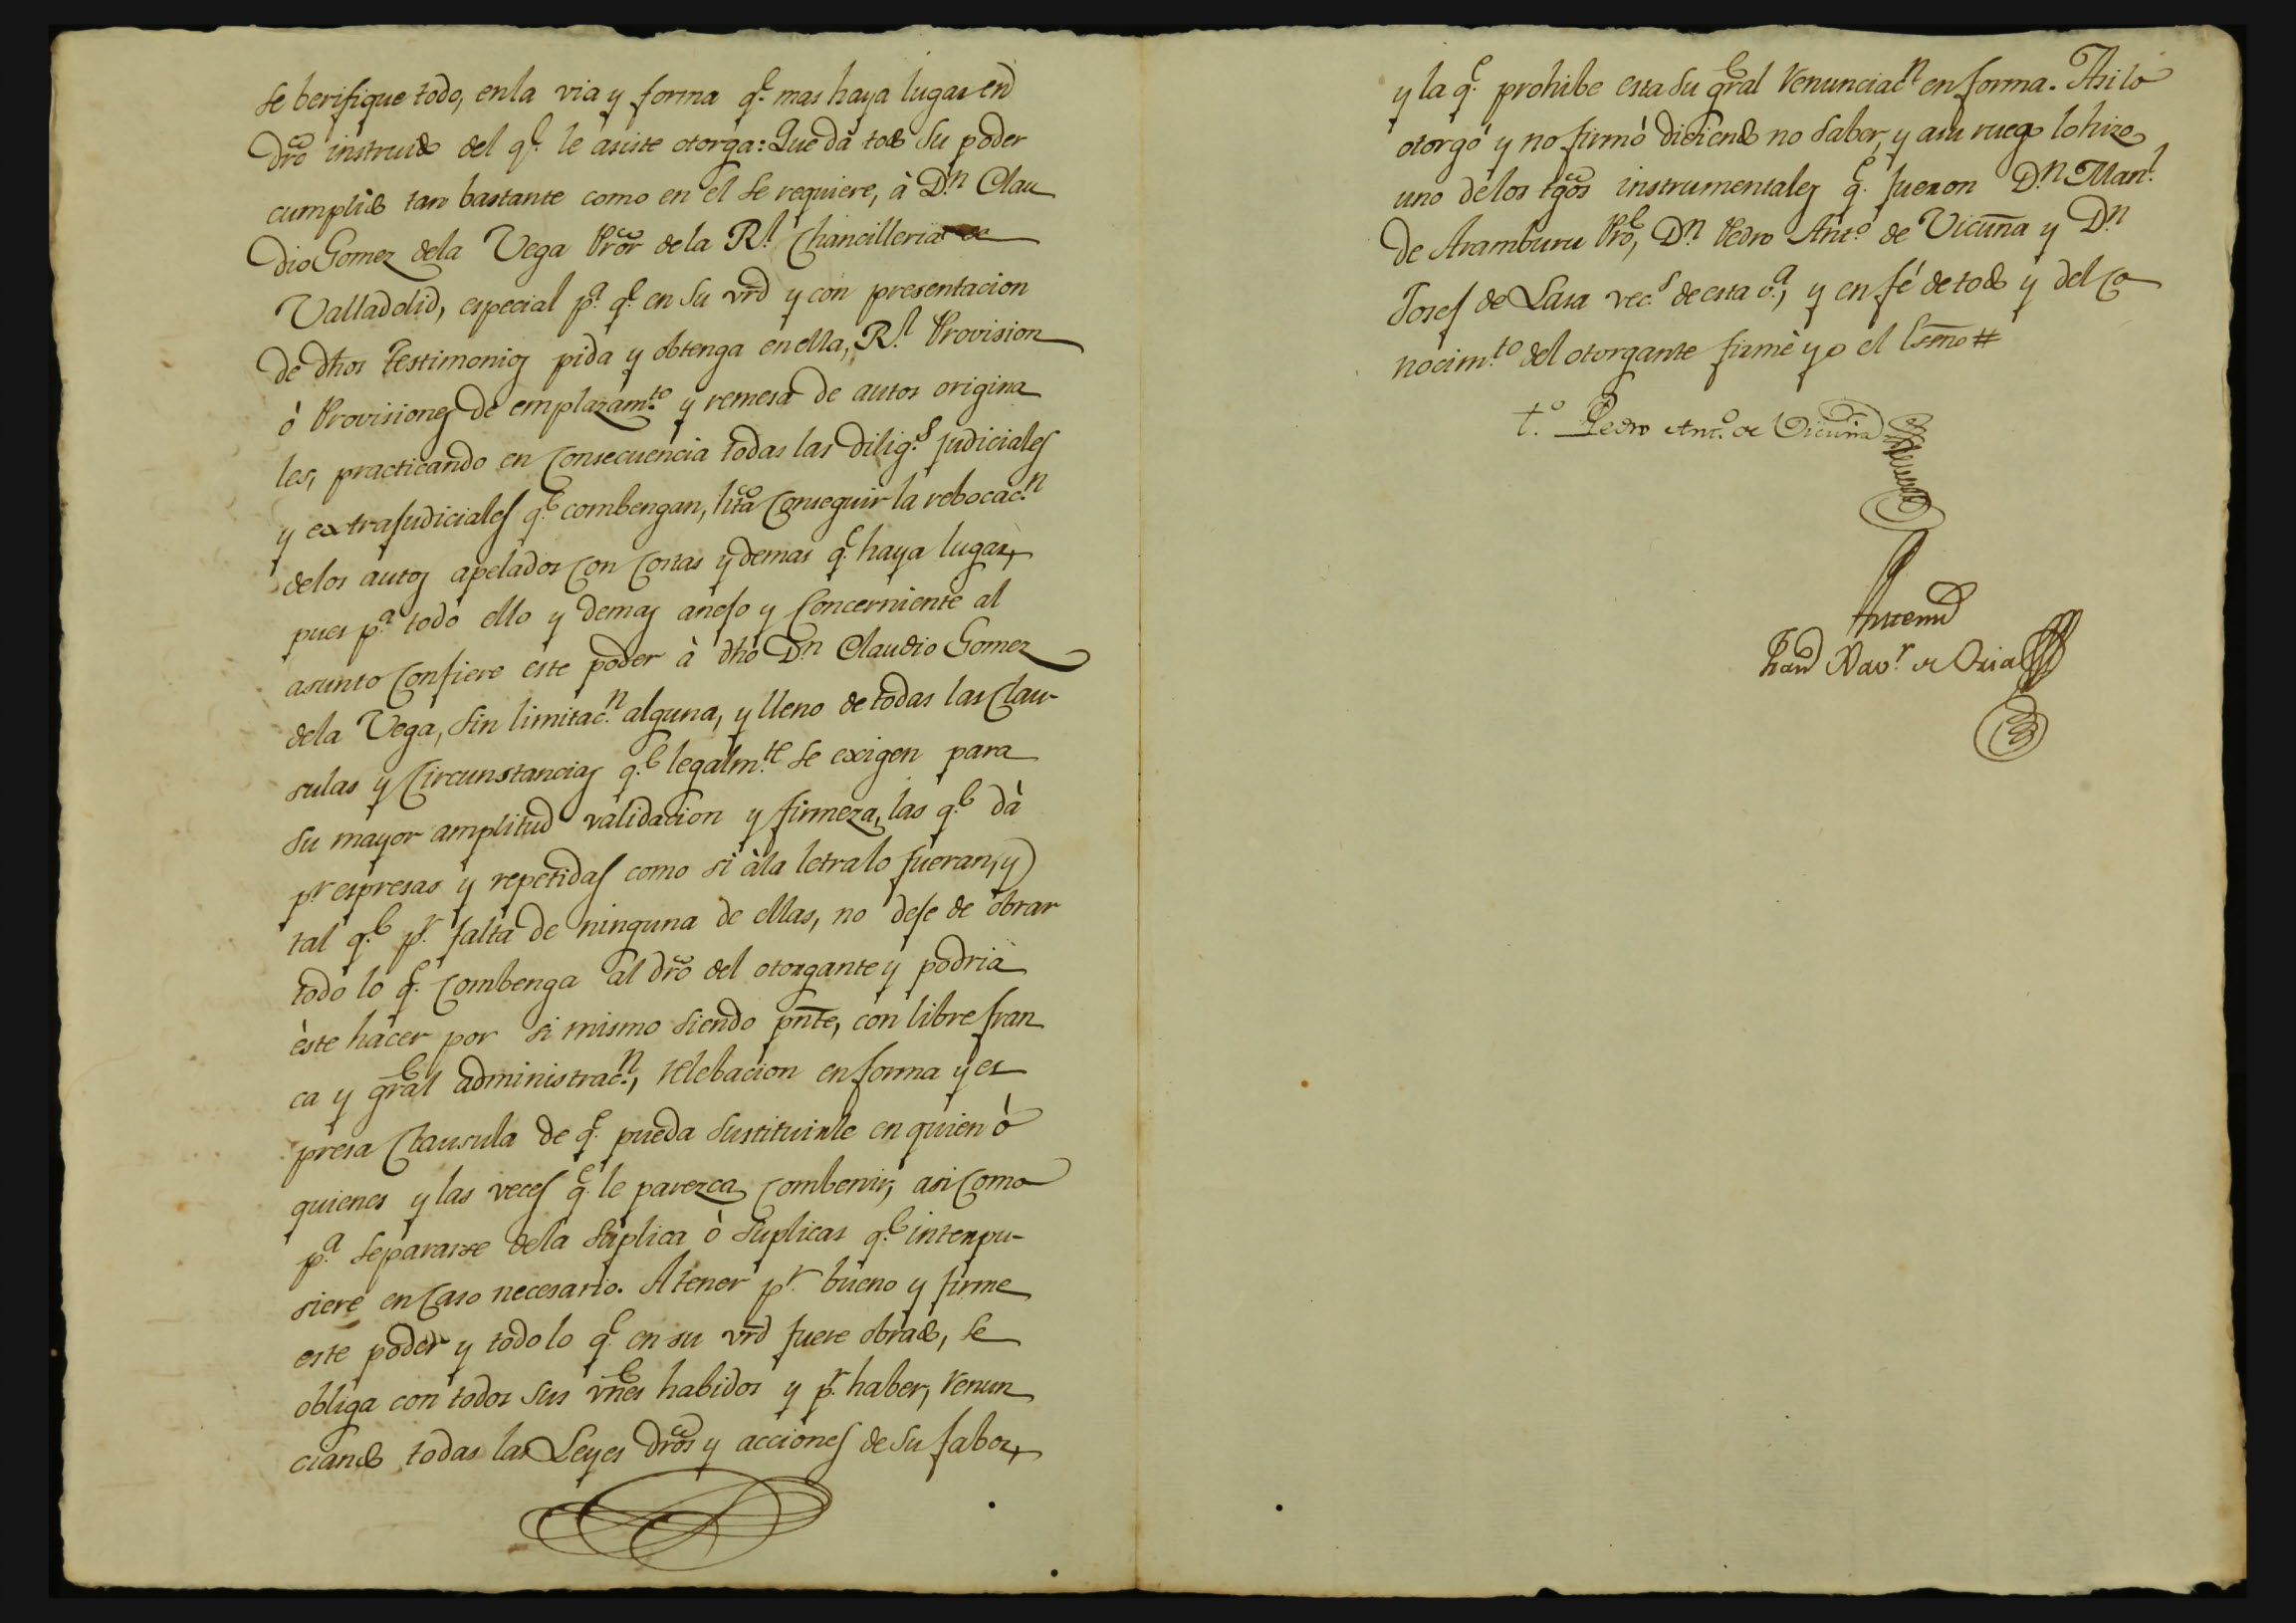 se berifique todo, en la via y forma q.e mas haya lugar en
dro instruido del q.e le asiste otorga: Que dá todo su poder
cumplido tan bastante como en el se requiere, à D.n Clau
dio Gomez de la Vega Pror de la R.l Chancilleria de
Valladolid, especial p.a q.e en su vrd y con presentacion
de dhos testimonios pida y obtenga en ella, R.l Provision
ò Provisiones de emplazam.to y remesa de autos origina
les, practicando en consecuencia todas las dilig.s judiciales
y extrajudiciales q.e combengan, hta conseguir la rebocac.n
de los autos apelados con costas y demas q.e haya lugar,
pues p.a todo ello y demas anejo y concerniente al
asunto confiere este poder à dho D.n Claudio Gomez
de la Vega, sin limitac.n alguna, y lleno de todas las clau-
sulas y circunstancias q.e legalm.te se exigen para
su mayor amplitud validacion y firmeza, las q.e dà
p.r espresas y repetidas como si à la letra lo fueran, y
tal q.e p.r falta de ninguna de ellas, no deje de obrar
todo lo q.e combenga al dro del otorgante y podria
èste hacer por si mismo siendo pnte, con libre fran
ca y gral administrac.n, relebacion en forma y es
presa clausula de q.e pueda sustituirle en quien ò
quienes y las veces q.e le parezca combenir, asi como
p.a separarse de la suplica ò suplicas q.e interpu-
siere en caso necesario. A tener p.r bueno y firme
este poder y todo lo q.e en su vrd fuere obrado, se
obliga con todos sus vnes habidos y p.r haber, renun
ciando todas las Leyes dros y acciones de su fabor,
y la q.e prohibe esta su gral renunciac.n en forma. Asi lo
otorgó y no firmó diciendo no saber, y a su ruego lo hizo
uno de los tgos instrumentales q.e fueron D.n Man.l
de Aramburu Pro, D.n Pedro Ant.o de Vicuña y D.n
Josef de Lasa vec.s de esta v.a, y en fé de todo y del co
nocim.to del otorgante firmè yo el Esno #
t.o Pedro Ant.o de Vicuña
Antemi
Xav.r de Oria